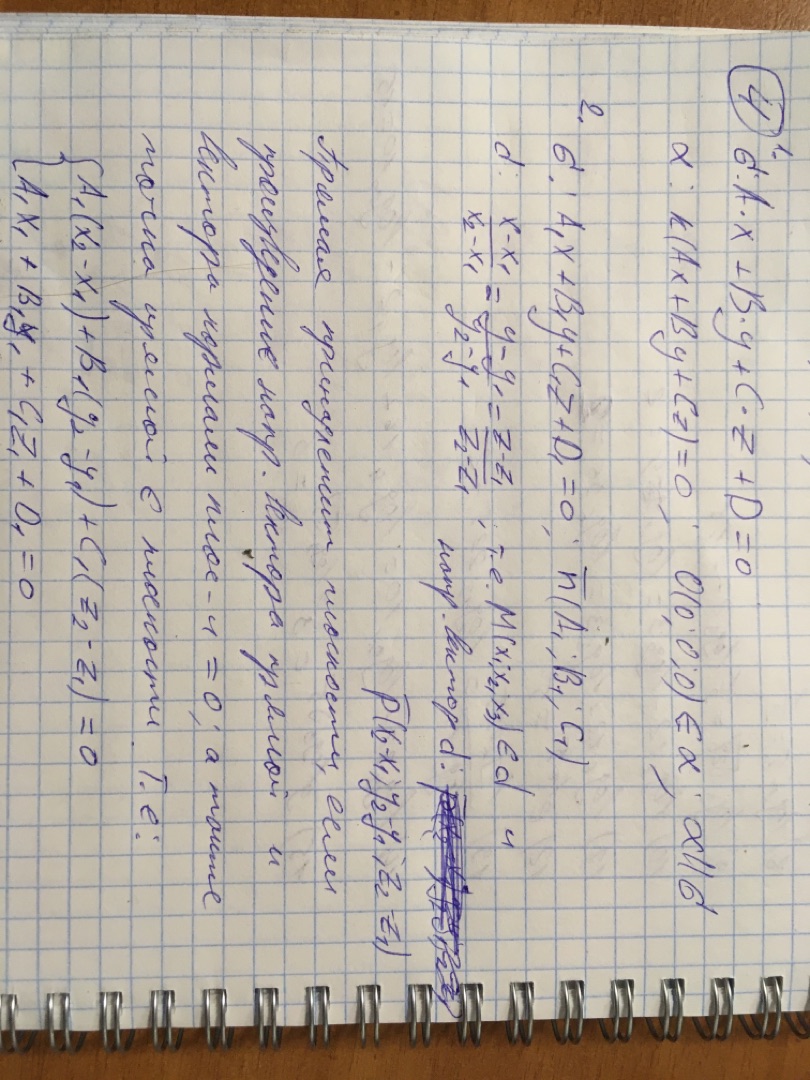 4
1. б: A·x + B·y + C·z + D = 0
α: k(Ax + By + Cz) = 0; O(0; 0; 0) ∈ α; α || б
2. б: A₁x + B₁y + C₁z + D₁ = 0; n̅(A₁; B₁; C₁)
d: (x-x₁)/(x₂-x₁) = (y-y₁)/(y₂-y₁) = (z-z₁)/(z₂-z₁); т.е. M(x₁; x₂; x₃) ∈ d и
напр. вектор d:
p̅(x₂-x₁; y₂-y₁; z₂-z₁)
Прямая принадлежит плоскости, если
произведение напр. вектора прямой и
вектора нормали плос-и = 0; а также
точка прямой ∈ плоскости. Т.е:
{ A₁(x₂-x₁) + B₁(y₂-y₁) + C₁(z₂-z₁) = 0
{ A₁x₁ + B₁y₁ + C₁z₁ + D₁ = 0